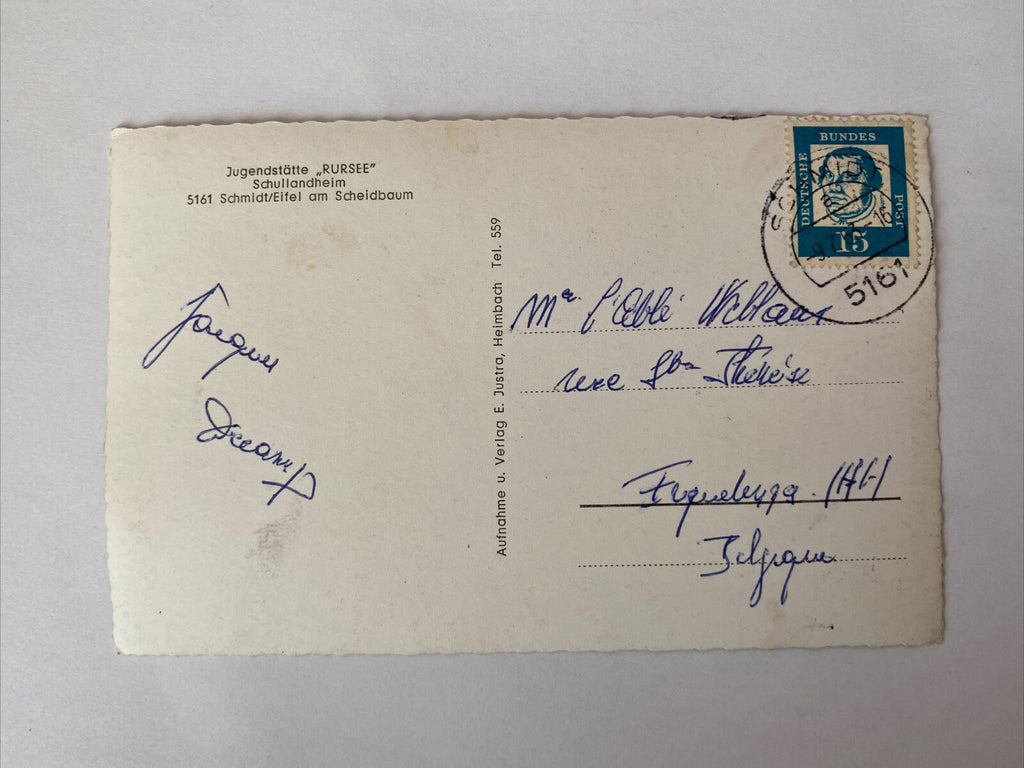 Jugendstätte „RURSEE"
Schullandheim
5161 Schmidt/Eifel am Scheidbaum
Aufnahme u. Verlag E. Justra, Heimbach Tel. 559
DEUTSCHE
BUNDES
POST
15
SCHMIDT
5161
l'Abbé
rue Ste Thérèse
Belgique